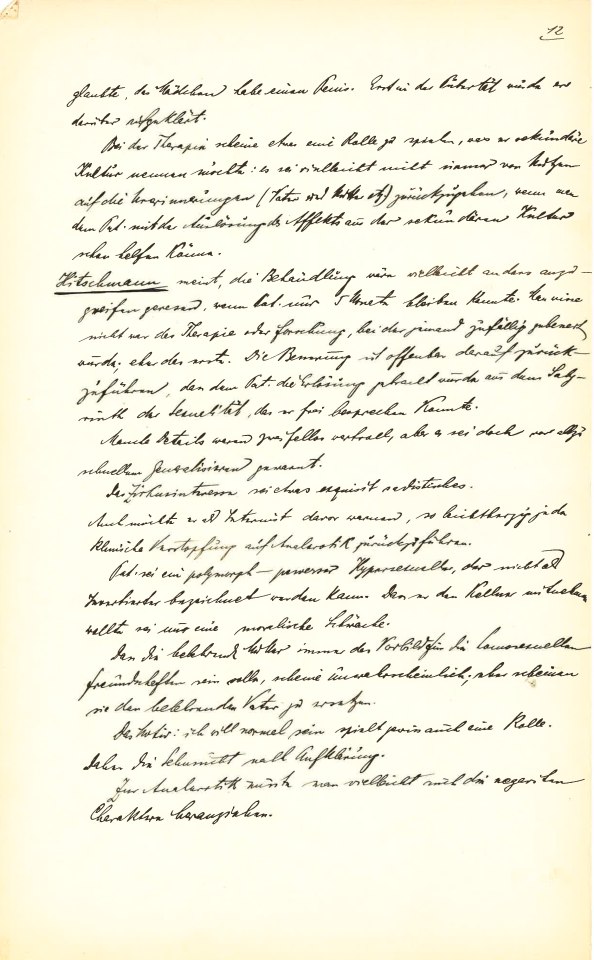 12
glaubte, das Mädchen habe einen Penis. Erst in der Pubertät wurde er
darüber aufgeklärt.
Bei der Therapie scheine etwas eine Rolle zu spielen, was er sekundäre
Kultur nennen möchte: es sei vielleicht nicht immer von Nutzen
auf die Urerinnerungen (Vater und Mutter etz) zurückzugehen, wenn man
dem Pat. mit der Auslösung des Affekts aus der sekundären Kultur
schon helfen könne.
Hitschmann meint, die Behandlung wäre vielleicht anders anzu-
greifen gewesen, wenn Pat. nur 5 Monate bleiben konnte. Man wisse
nicht war das Therapie oder Forschung, bei der jemand zufällig gebessert
wurde; eher das erste. Die Besserung ist offenbar darauf zurück-
zuführen, dass dem Pat. die Erlösung gebracht wurde aus dem Laby-
rinth der Sexualität, das er frei besprechen konnte.
Manche Details waren zweifellos wertvoll, aber es sei doch vor allzu
schnellem Generalisieren gewarnt.
Das Zirkusinteresse sei etwas exquisit sadistisches.
Auch möchte er als Internist davor warnen, so leichtherzig jede
klinische Verstopfung auf Analerotik zurückzuführen.
Pat. sei ein polymorph-perverser Hypersexueller, der nicht als
Invertierter bezeichnet werden kann. Dass er den Kellner mitnehmen
wollte sei nur eine moralische Schwäche.
Dass die belehrende Mutter immer das Vorbild für die homosexuellen
Freundschaften sein solle, scheine unwahrscheinlich; eher scheinen
sie den belehrenden Vater zu ersetzen.
Das Motiv: ich will normal sein spielt gewiss auch eine Rolle.
Daher die Sehnsucht nach Aufklärung.
Zur Analerotik müsste man vielleicht auch die
Charaktere heranziehen.